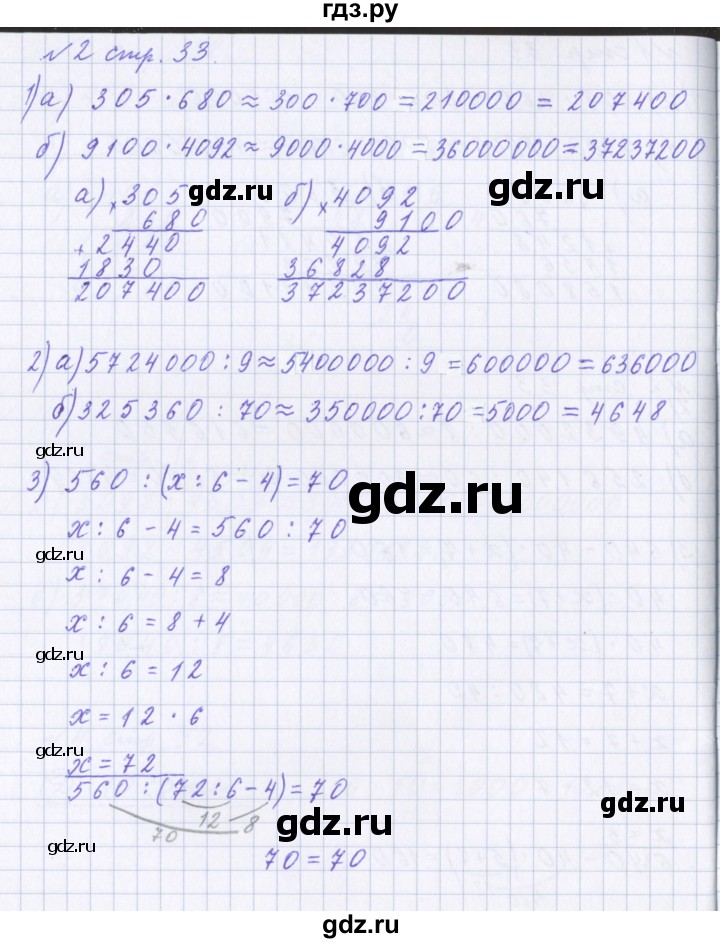 гдз.ру
№2 стр. 33.
1) а) 305 · 680 ≈ 300 · 700 = 210000 = 207400
б) 9100 · 4092 ≈ 9000 · 4000 = 36000000 = 37237200
gdz.ru
gdz.ru
а) × 305 б) × 4092
680 9100
+ 2440 4092
1830 36828
207400 37237200
2) а) 5724000 : 9 ≈ 5400000 : 9 = 600000 = 636000
б) 325360 : 70 ≈ 350000 : 70 = 5000 = 4648
gdz.ru
3) 560 : (x : 6 - 4) = 70
gdz.ru
x : 6 - 4 = 560 : 70
gdz.ru
x : 6 - 4 = 8
x : 6 = 8 + 4
gdz.ru
x : 6 = 12
x = 12 · 6
gdz.ru
x = 72
560 : (72 : 6 - 4) = 70
gdz.ru
12 8
70
gdz.ru
70 = 70
gdz.ru